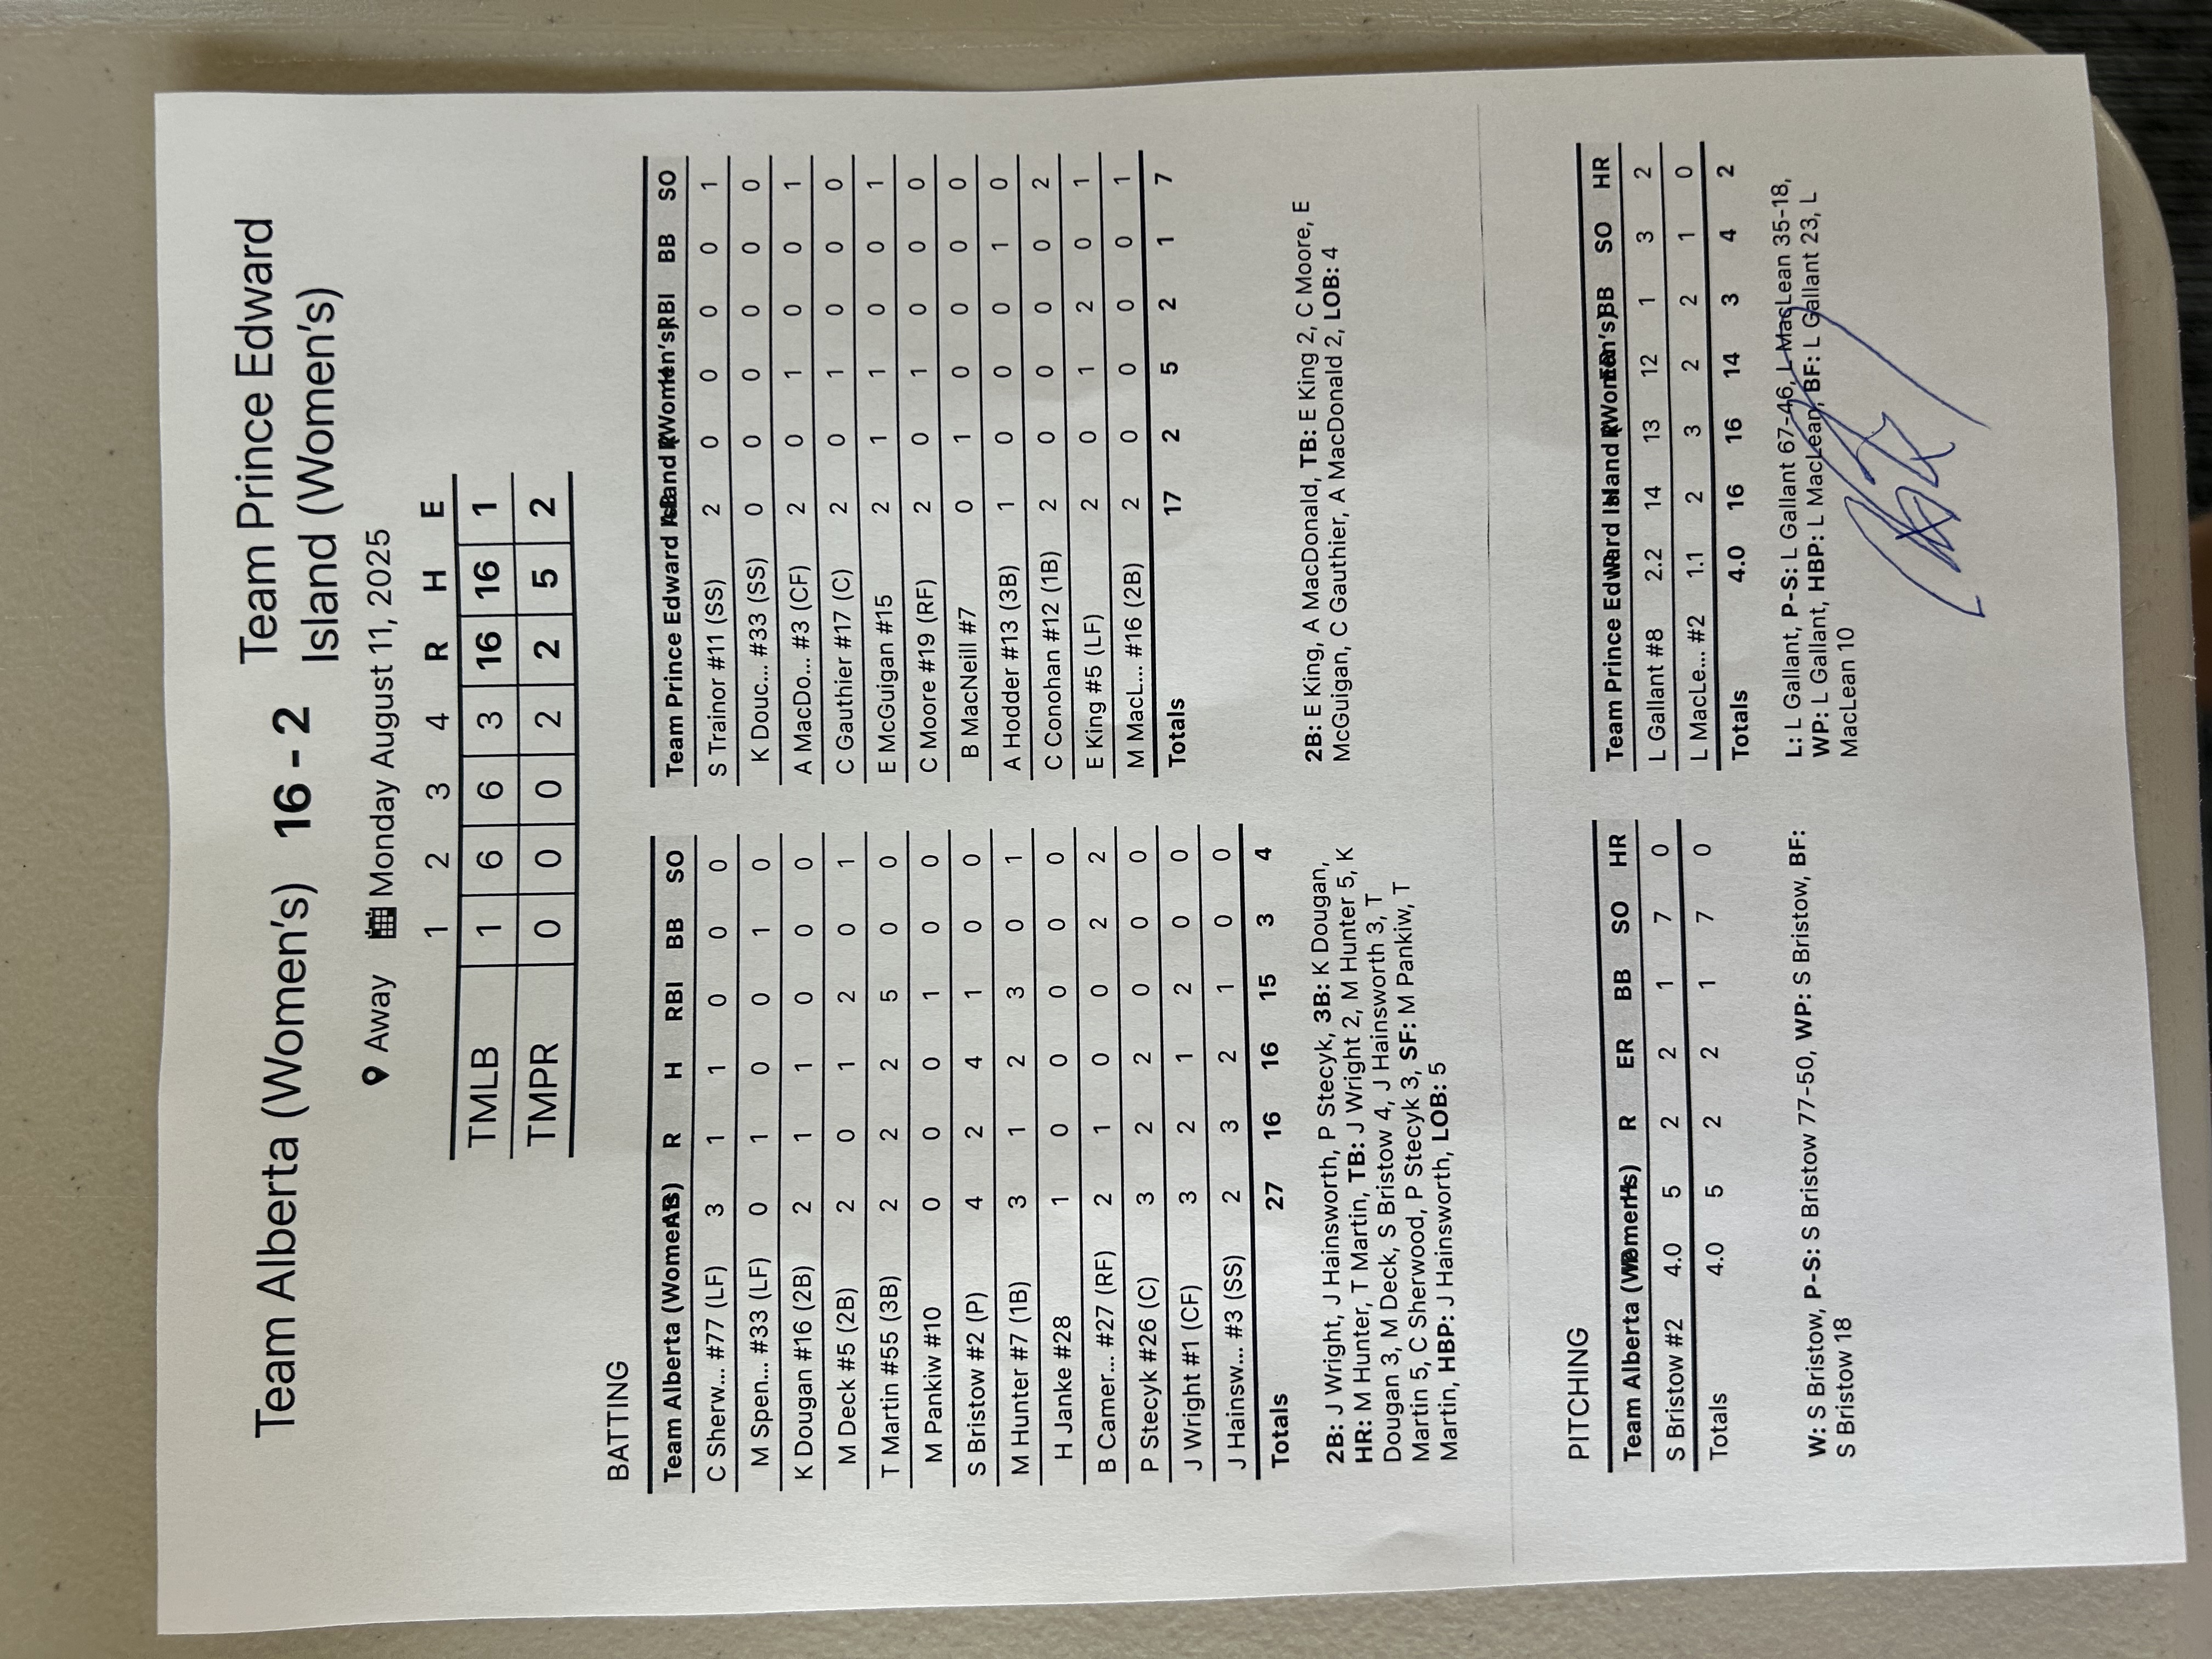 Team Alberta (Women's) 16 - 2 Team Prince Edward Island (Women's)
Away Monday August 11, 2025
1 2 3 4 R H E
TMLB 1 6 6 3 16 16 1
TMPR 0 0 0 2 2 5 2
BATTING
Team Alberta (Women's) AB R H RBI BB SO
C Sherw... #77 (LF) 3 1 1 0 0 0
M Spen... #33 (LF) 0 1 0 0 1 0
K Dougan #16 (2B) 2 1 1 0 0 0
M Deck #5 (2B) 2 0 1 2 0 1
T Martin #55 (3B) 2 2 2 5 0 0
M Pankiw #10 0 0 0 1 0 0
S Bristow #2 (P) 4 2 4 1 0 0
M Hunter #7 (1B) 3 1 2 3 0 1
H Janke #28 1 0 0 0 0 0
B Camer... #27 (RF) 2 1 0 0 2 2
P Stecyk #26 (C) 3 2 2 0 0 0
J Wright #1 (CF) 3 2 1 2 0 0
J Hainsw... #3 (SS) 2 3 2 1 0 0
Totals 27 16 16 15 3 4
2B: J Wright, J Hainsworth, P Stecyk, 3B: K Dougan,
HR: M Hunter, T Martin, TB: J Wright 2, M Hunter 5, K
Dougan 3, M Deck, S Bristow 4, J Hainsworth 3, T
Martin 5, C Sherwood, P Stecyk 3, SF: M Pankiw, T
Martin, HBP: J Hainsworth, LOB: 5
Team Prince Edward Island (Women's) AB R H RBI BB SO
S Trainor #11 (SS) 2 0 0 0 0 1
K Douc... #33 (SS) 0 0 0 0 0 0
A MacDo... #3 (CF) 2 0 1 0 0 1
C Gauthier #17 (C) 2 0 1 0 0 0
E McGuigan #15 2 1 1 0 0 1
C Moore #19 (RF) 2 0 1 0 0 0
B MacNeill #7 0 1 0 0 0 0
A Hodder #13 (3B) 1 0 0 0 1 0
C Conohan #12 (1B) 2 0 0 0 0 2
E King #5 (LF) 2 0 1 2 0 1
M MacL... #16 (2B) 2 0 0 0 0 1
Totals 17 2 5 2 1 7
2B: E King, A MacDonald, TB: E King 2, C Moore, E
McGuigan, C Gauthier, A MacDonald 2, LOB: 4
PITCHING
Team Alberta (Women's) IP H R ER BB SO HR
S Bristow #2 4.0 5 2 2 1 7 0
Totals 4.0 5 2 2 1 7 0
W: S Bristow, P-S: S Bristow 77-50, WP: S Bristow, BF:
S Bristow 18
Team Prince Edward Island (Women's) IP H R ER BB SO HR
L Gallant #8 2.2 14 13 12 1 3 2
L MacLe... #2 1.1 2 3 2 2 1 0
Totals 4.0 16 16 14 3 4 2
L: L Gallant, P-S: L Gallant 67-46, L MacLean 35-18,
WP: L Gallant, HBP: L MacLean, BF: L Gallant 23, L
MacLean 10